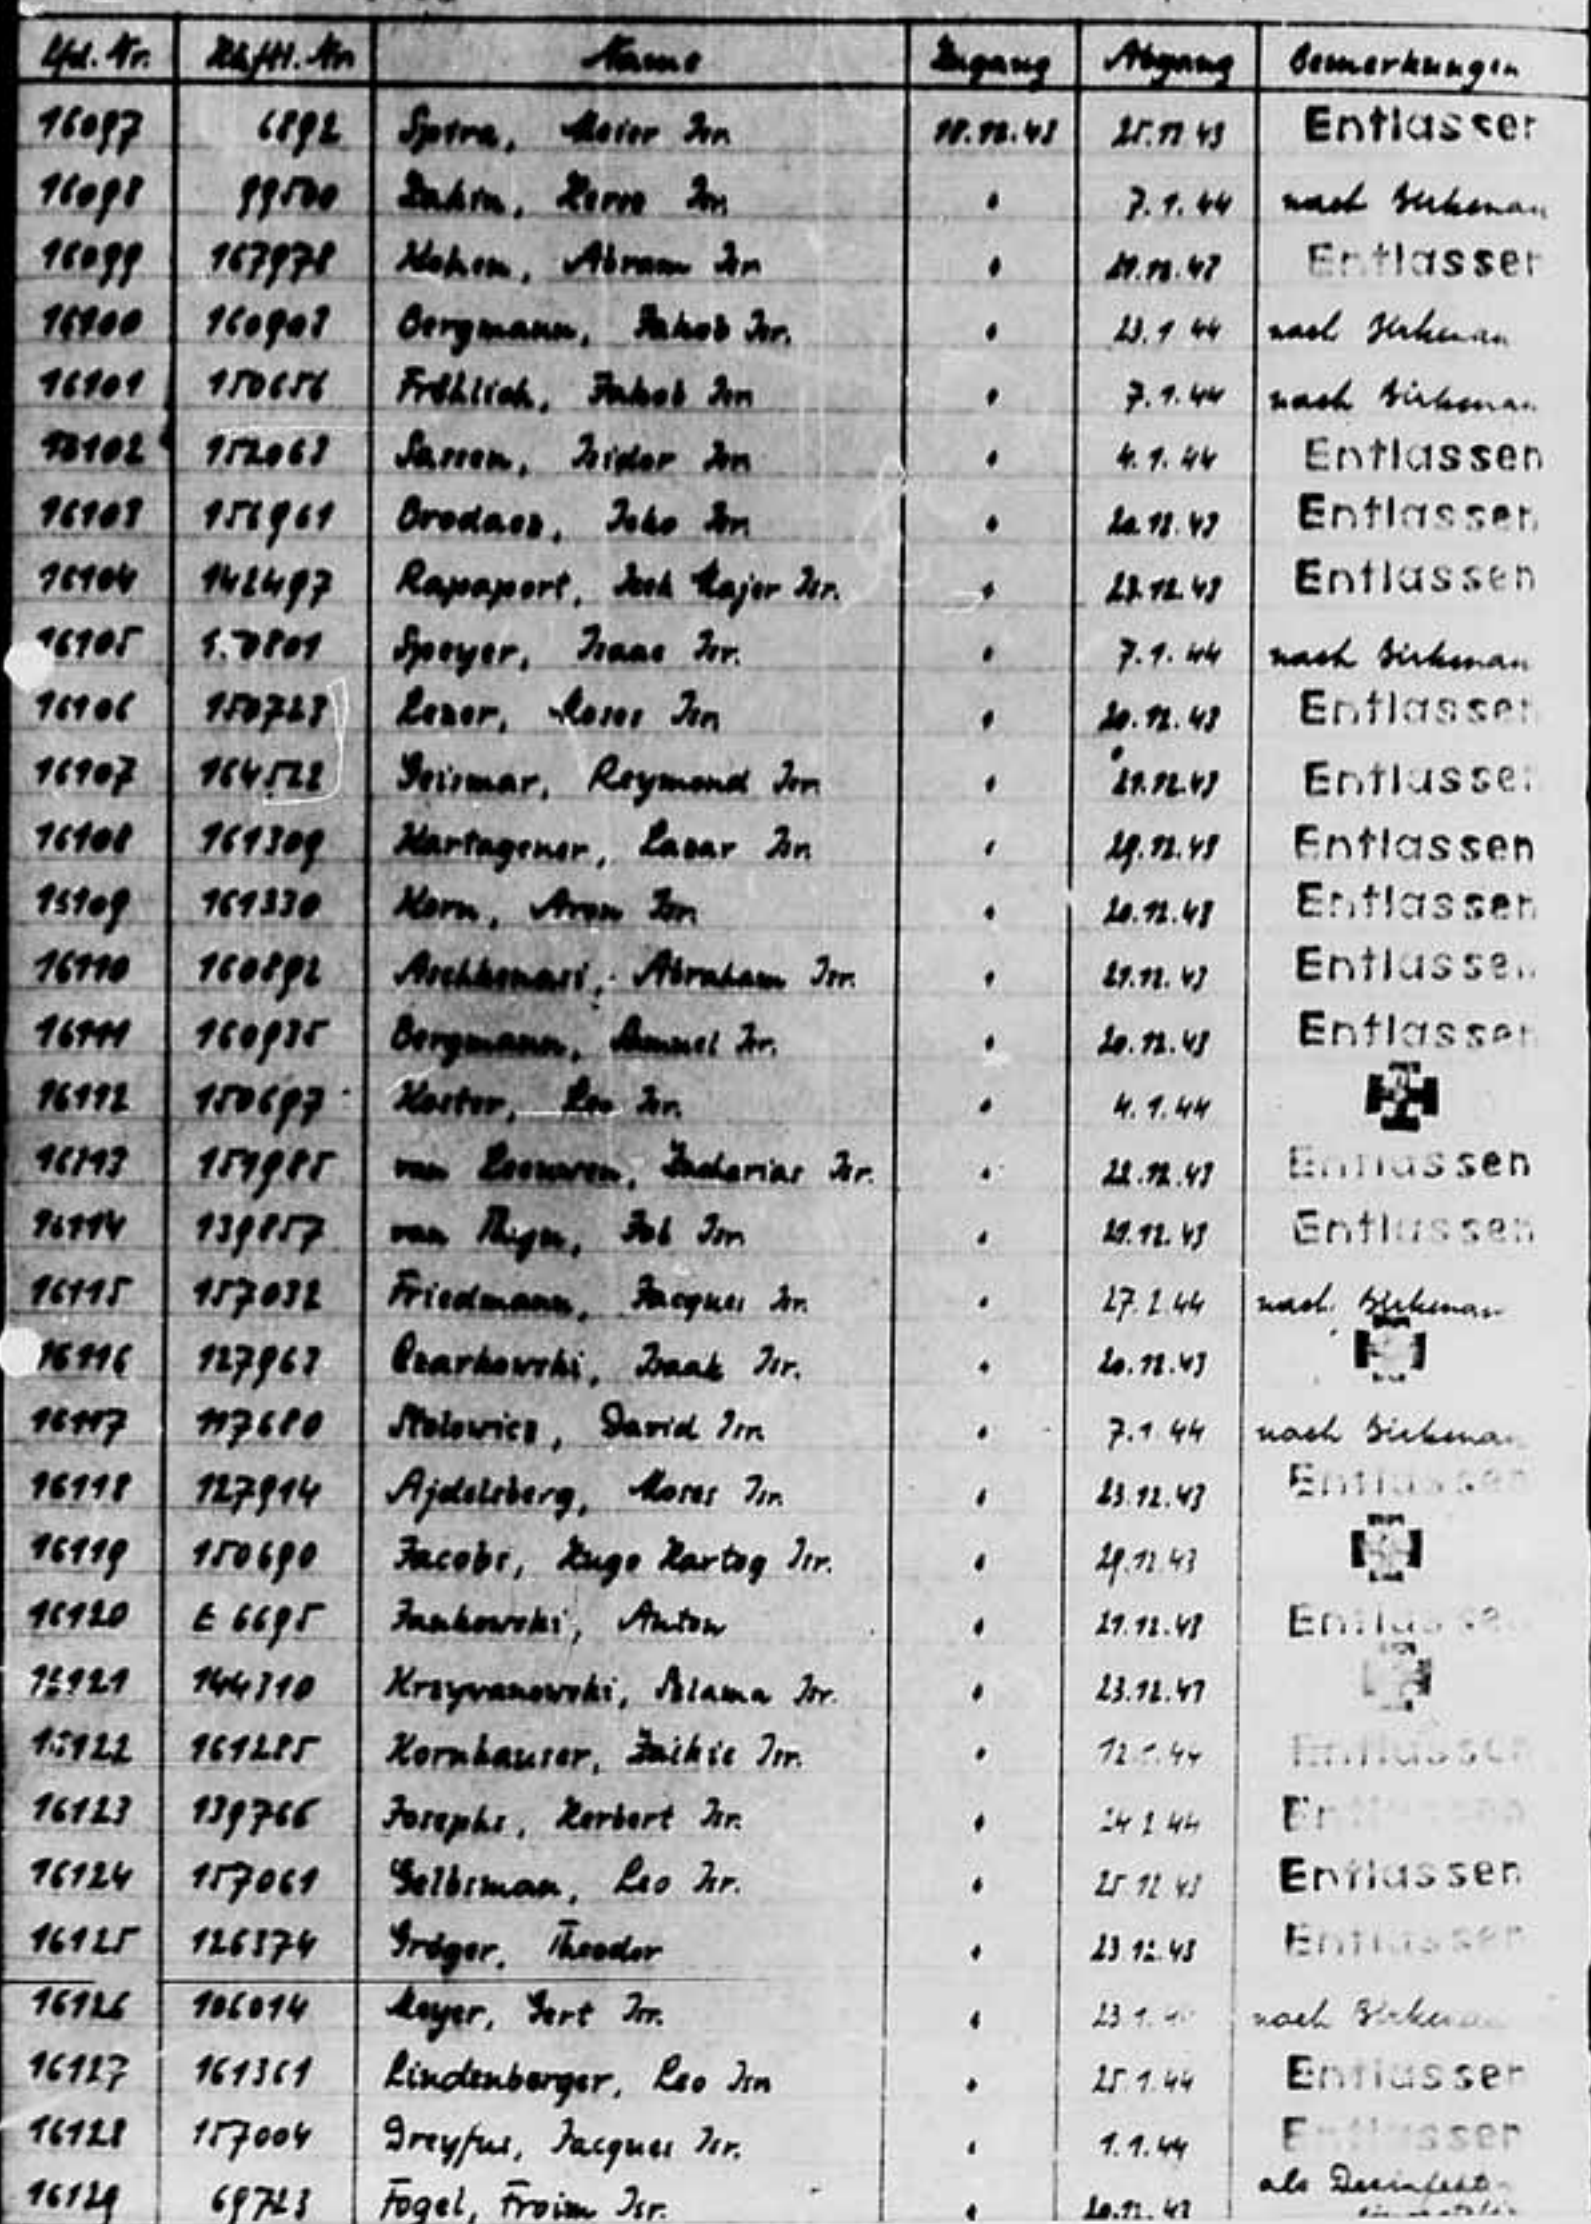 Lfd. Nr. Häftl. Nr. Name Zugang Abgang Bemerkungen
16097 6892 Spira, Meier Isr. 18.12.43 25.12.43 Entlassen
16098 99500 Isr. " 7.1.44 nach Birkenau
16099 167978 Kohen, Abram Isr. " 21.12.43 Entlassen
16100 160908 Bergmann, Jakob Isr. " 23.1.44 nach Birkenau
16101 150656 Fröhlich, Jakob Isr. " 7.1.44 nach Birkenau
16102 152063 Isidor Isr. " 4.1.44 Entlassen
16103 156961 Isr. " 20.12.43 Entlassen
16104 142497 Rapaport, Majer Isr. " 23.12.43 Entlassen
16105 Speyer, Isaac Isr. " 7.1.44 nach Birkenau
16106 150723 Lezer, Moses Isr. " 20.12.43 Entlassen
16107 164522 Geismar, Reymond Isr. " 21.12.43 Entlassen
16108 161309 Kartagener, Lazar Isr. " 29.12.43 Entlassen
16109 161330 Korn, Aron Isr. " 20.12.43 Entlassen
16110 160892 Aschkenasi, Abraham Isr. " 21.12.43 Entlassen
16111 160935 Bergmann, Samuel Isr. " 20.12.43 Entlassen
16112 150697 Koster, Leo Isr. " 4.1.44
16113 151985 van Leeuwen, Zacharias Isr. " 22.12.43 Entlassen
16114 139857 van Thijn, Job Isr. " 21.12.43 Entlassen
16115 157032 Friedmann, Jacques Isr. " 27.2.44 nach Birkenau
16116 127963 Czarkowski, Isaak Isr. " 20.12.43
16117 117680 Stolowicz, David Isr. " 7.1.44 nach Birkenau
16118 127914 Ajdelsberg, Moses Isr. " 23.12.43 Entlassen
16119 150690 Jacobs, Hugo Hartog Isr. " 29.12.43
16120 E 6695 Jankowski, Anton " 21.12.43 Entlassen
16121 144310 Krzyvanowski, Szlama Isr. " 23.12.43
16122 161285 Kornhauser, Isr. " 12.1.44 Entlassen
16123 139766 Josephs, Herbert Isr. " 24.2.44 Entlassen
16124 157061 Gelbsman, Leo Isr. " 25.12.43 Entlassen
16125 126374 Gröger, Theodor " 23.12.43 Entlassen
16126 106014 Meyer, Gert Isr. " 23.1.44 nach Birkenau
16127 161361 Lindenberger, Leo Isr. " 25.1.44 Entlassen
16128 157004 Dreyfus, Jacques Isr. " 1.1.44 Entlassen
16129 69723 Fogel, Froim Isr. " 20.12.43 als